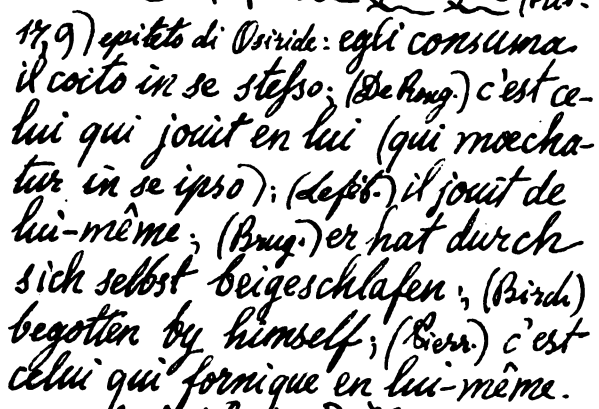 17,9) epiteto di Osiride: egli consuma
il coito in se stesso; (De Roug.) c'est ce-
lui qui jouit en lui (qui mœcha-
tur in se ipso); (Leféb.) il jouit de
lui-même; (Brug.) er hat durch
sich selbst beigeschlafen; (Birch)
begotten by himself; (Pierr.) c'est
celui qui fornique en lui-même.